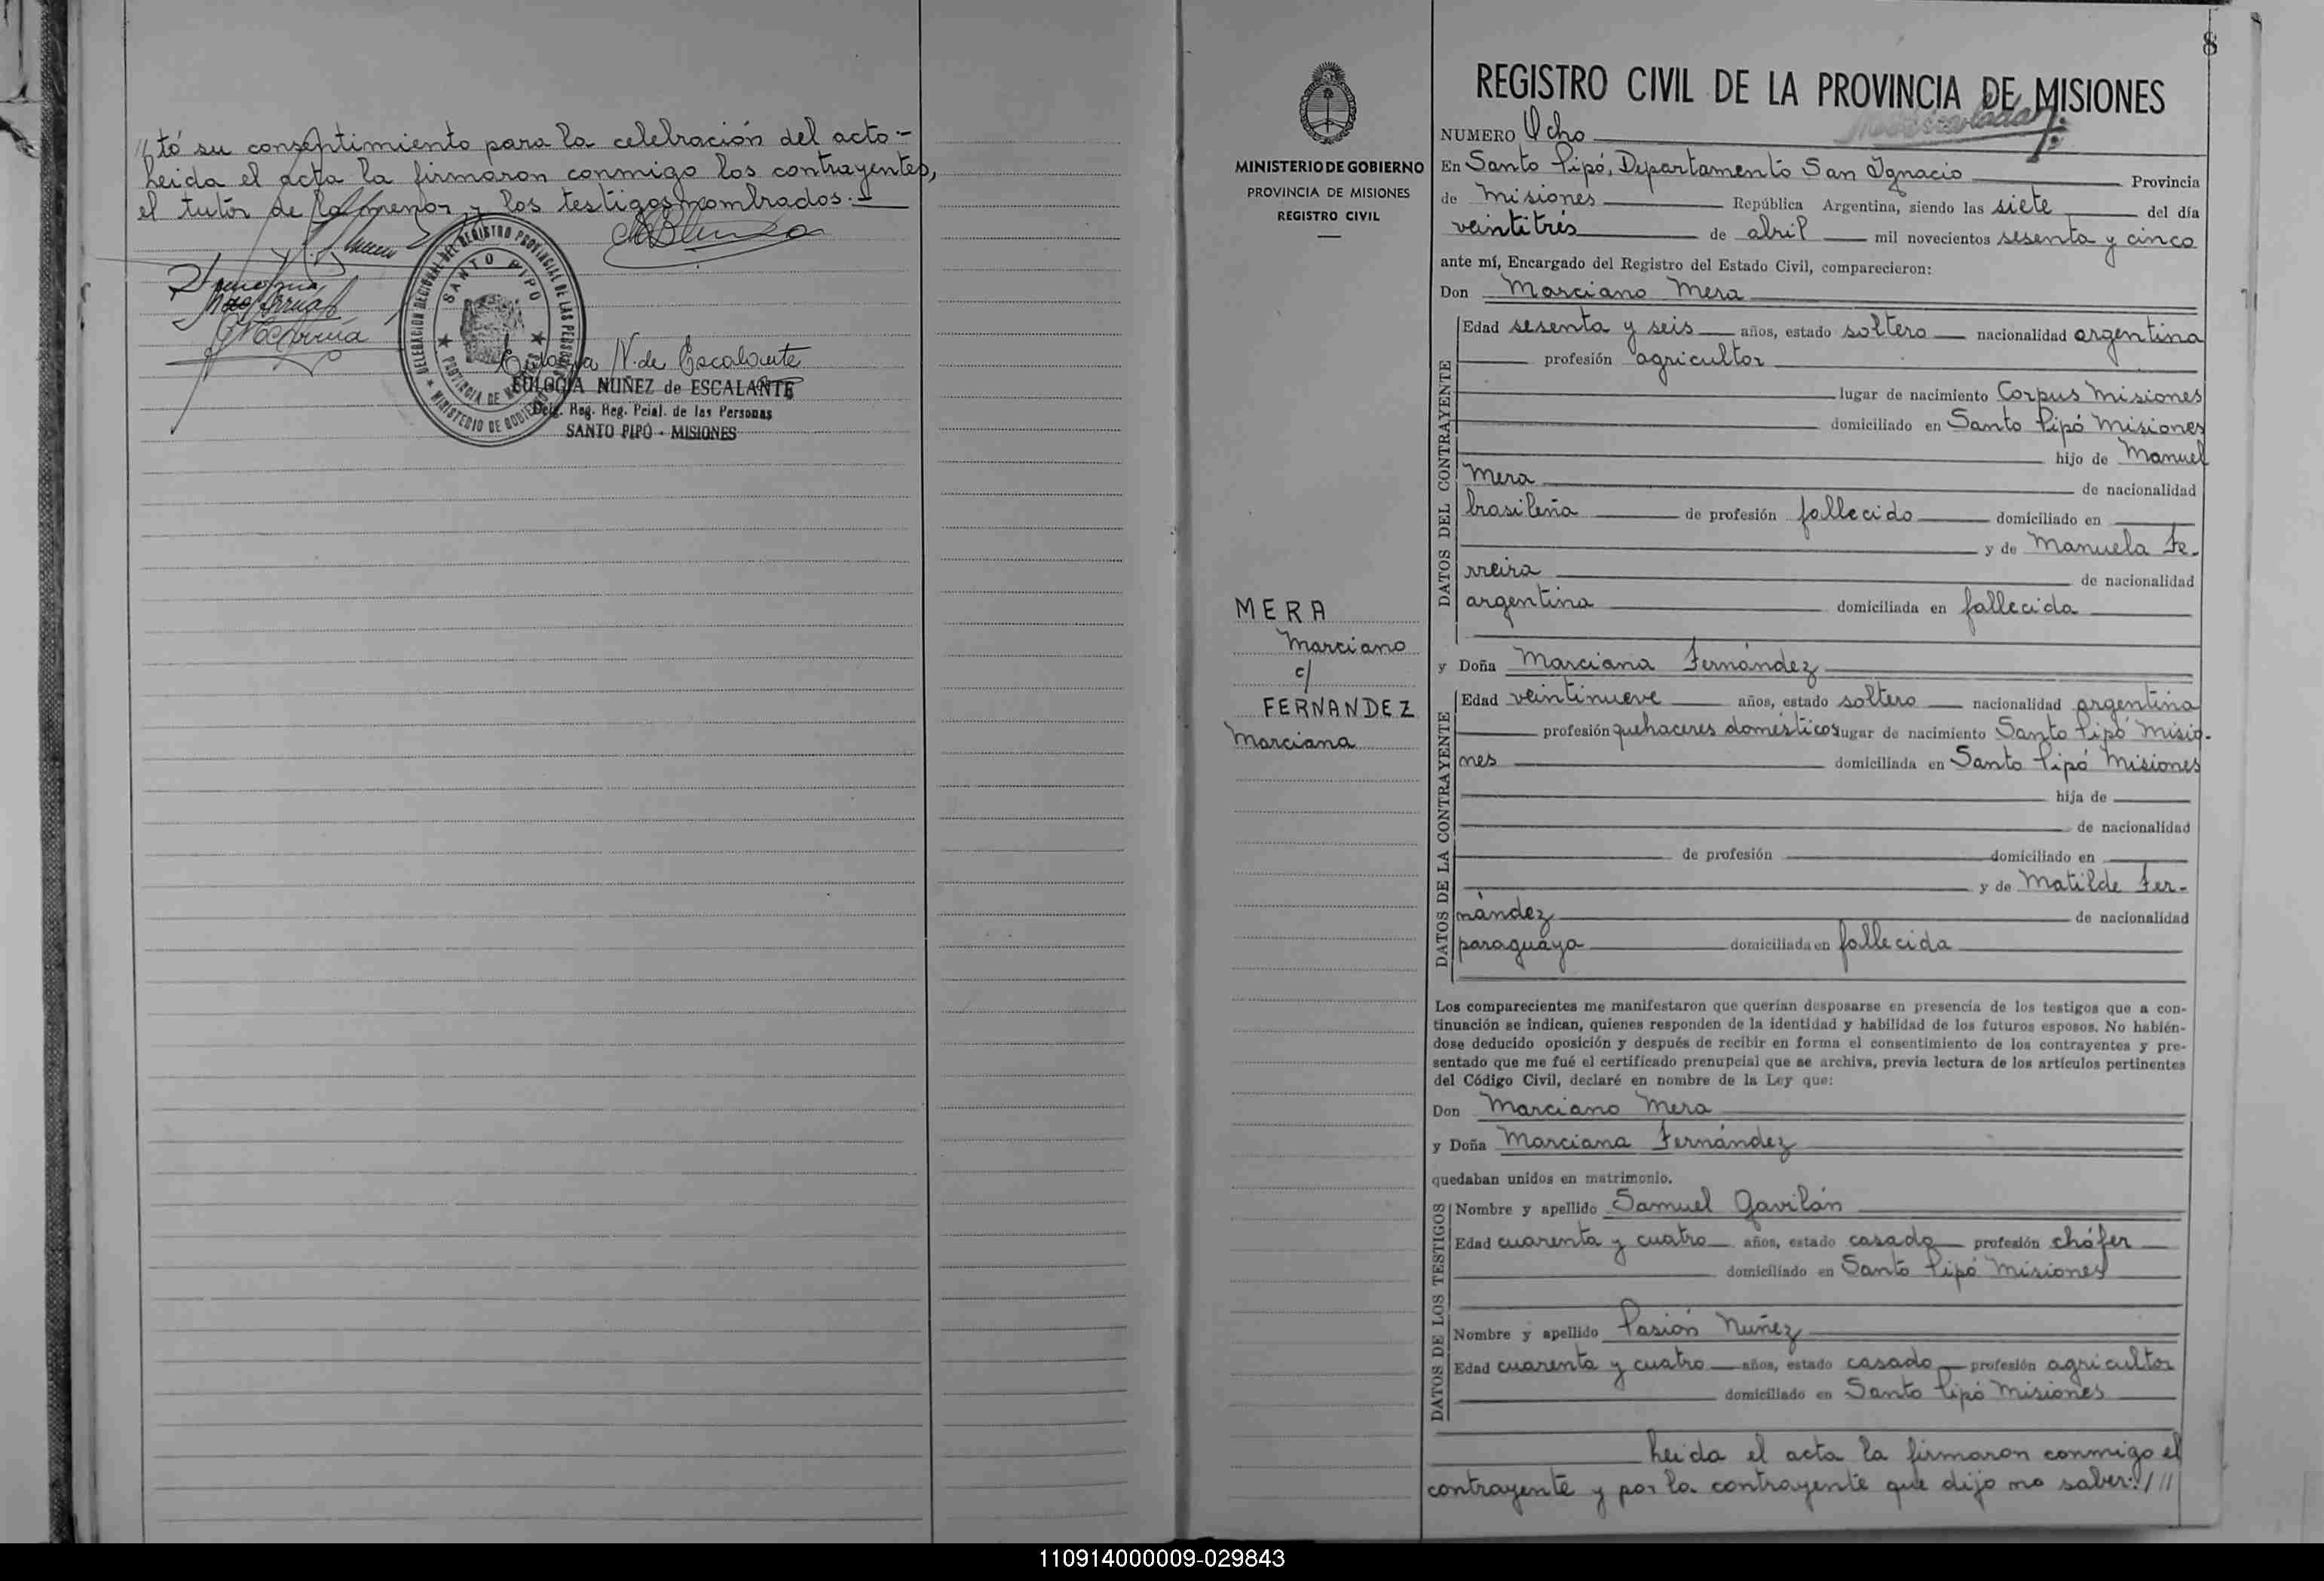 //tó su consentimiento para la celebración del acto-
Leida el acta la firmaron conmigo los contrayentes,
el tutor de la menor y los testigos nombrados.-
DELEGACION REGIONAL DEL REGISTRO PROVINCIAL DE LAS PERSONAS
SANTO PIPO
PROVINCIA DE MISIONES
MINISTERIO DE GOBIERNO
Eulogia N. de Escalante
EULOGIA NUÑEZ de ESCALANTE
Deleg. Reg. Reg. Pcial. de las Personas
SANTO PIPÓ - MISIONES
8
REGISTRO CIVIL DE LA PROVINCIA DE MISIONES
MINISTERIO DE GOBIERNO
PROVINCIA DE MISIONES
REGISTRO CIVIL
MERA
Marciano
c/
FERNANDEZ
Marciana
NUMERO Ocho
En Santo Pipó, Departamento San Ignacio Provincia
de Misiones República Argentina, siendo las siete del día
veintitrés de abril mil novecientos sesenta y cinco
ante mí, Encargado del Registro del Estado Civil, comparecieron:
Don Marciano Mera
DATOS DEL CONTRAYENTE
Edad sesenta y seis años, estado soltero nacionalidad argentina
profesión agricultor
lugar de nacimiento Corpus Misiones
domiciliado en Santo Pipó Misiones
hijo de Manuel
Mera de nacionalidad
brasileña de profesión fallecido domiciliado en
y de Manuela Fe-
rreira de nacionalidad
argentina domiciliada en fallecida
y Doña Marciana Fernández
DATOS DE LA CONTRAYENTE
Edad veintinueve años, estado soltero nacionalidad argentina
profesión quehaceres domésticos lugar de nacimiento Santo Pipó Misio-
nes domiciliada en Santo Pipó Misiones
hija de
de nacionalidad
de profesión domiciliado en
y de Matilde Fer-
nández de nacionalidad
paraguaya domiciliada en fallecida
Los comparecientes me manifestaron que querían desposarse en presencia de los testigos que a con-
tinuación se indican, quienes responden de la identidad y habilidad de los futuros esposos. No habién-
dose deducido oposición y después de recibir en forma el consentimiento de los contrayentes y pre-
sentado que me fué el certificado prenupcial que se archiva, previa lectura de los artículos pertinentes
del Código Civil, declaré en nombre de la Ley que:
Don Marciano Mera
y Doña Marciana Fernández
quedaban unidos en matrimonio.
DATOS DE LOS TESTIGOS
Nombre y apellido Samuel Gavilán
Edad cuarenta y cuatro años, estado casado profesión chófer
domiciliado en Santo Pipó Misiones
Nombre y apellido Pasión Nuñez
Edad cuarenta y cuatro años, estado casado profesión agricultor
domiciliado en Santo Pipó Misiones
Leida el acta la firmaron conmigo el
contrayente y por la contrayente que dijo no saber.///
110914000009-029843